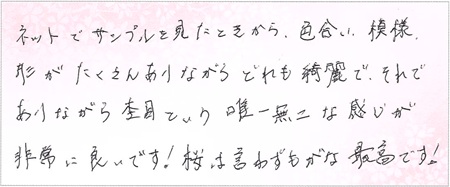 ネットでサンプルを見たときから、色合い、模様、
形がたくさんありながらどれも綺麗で、それで
ありながら杢目という唯一無二な感じが
非常に良いです!桜は言わずもがな最高です!